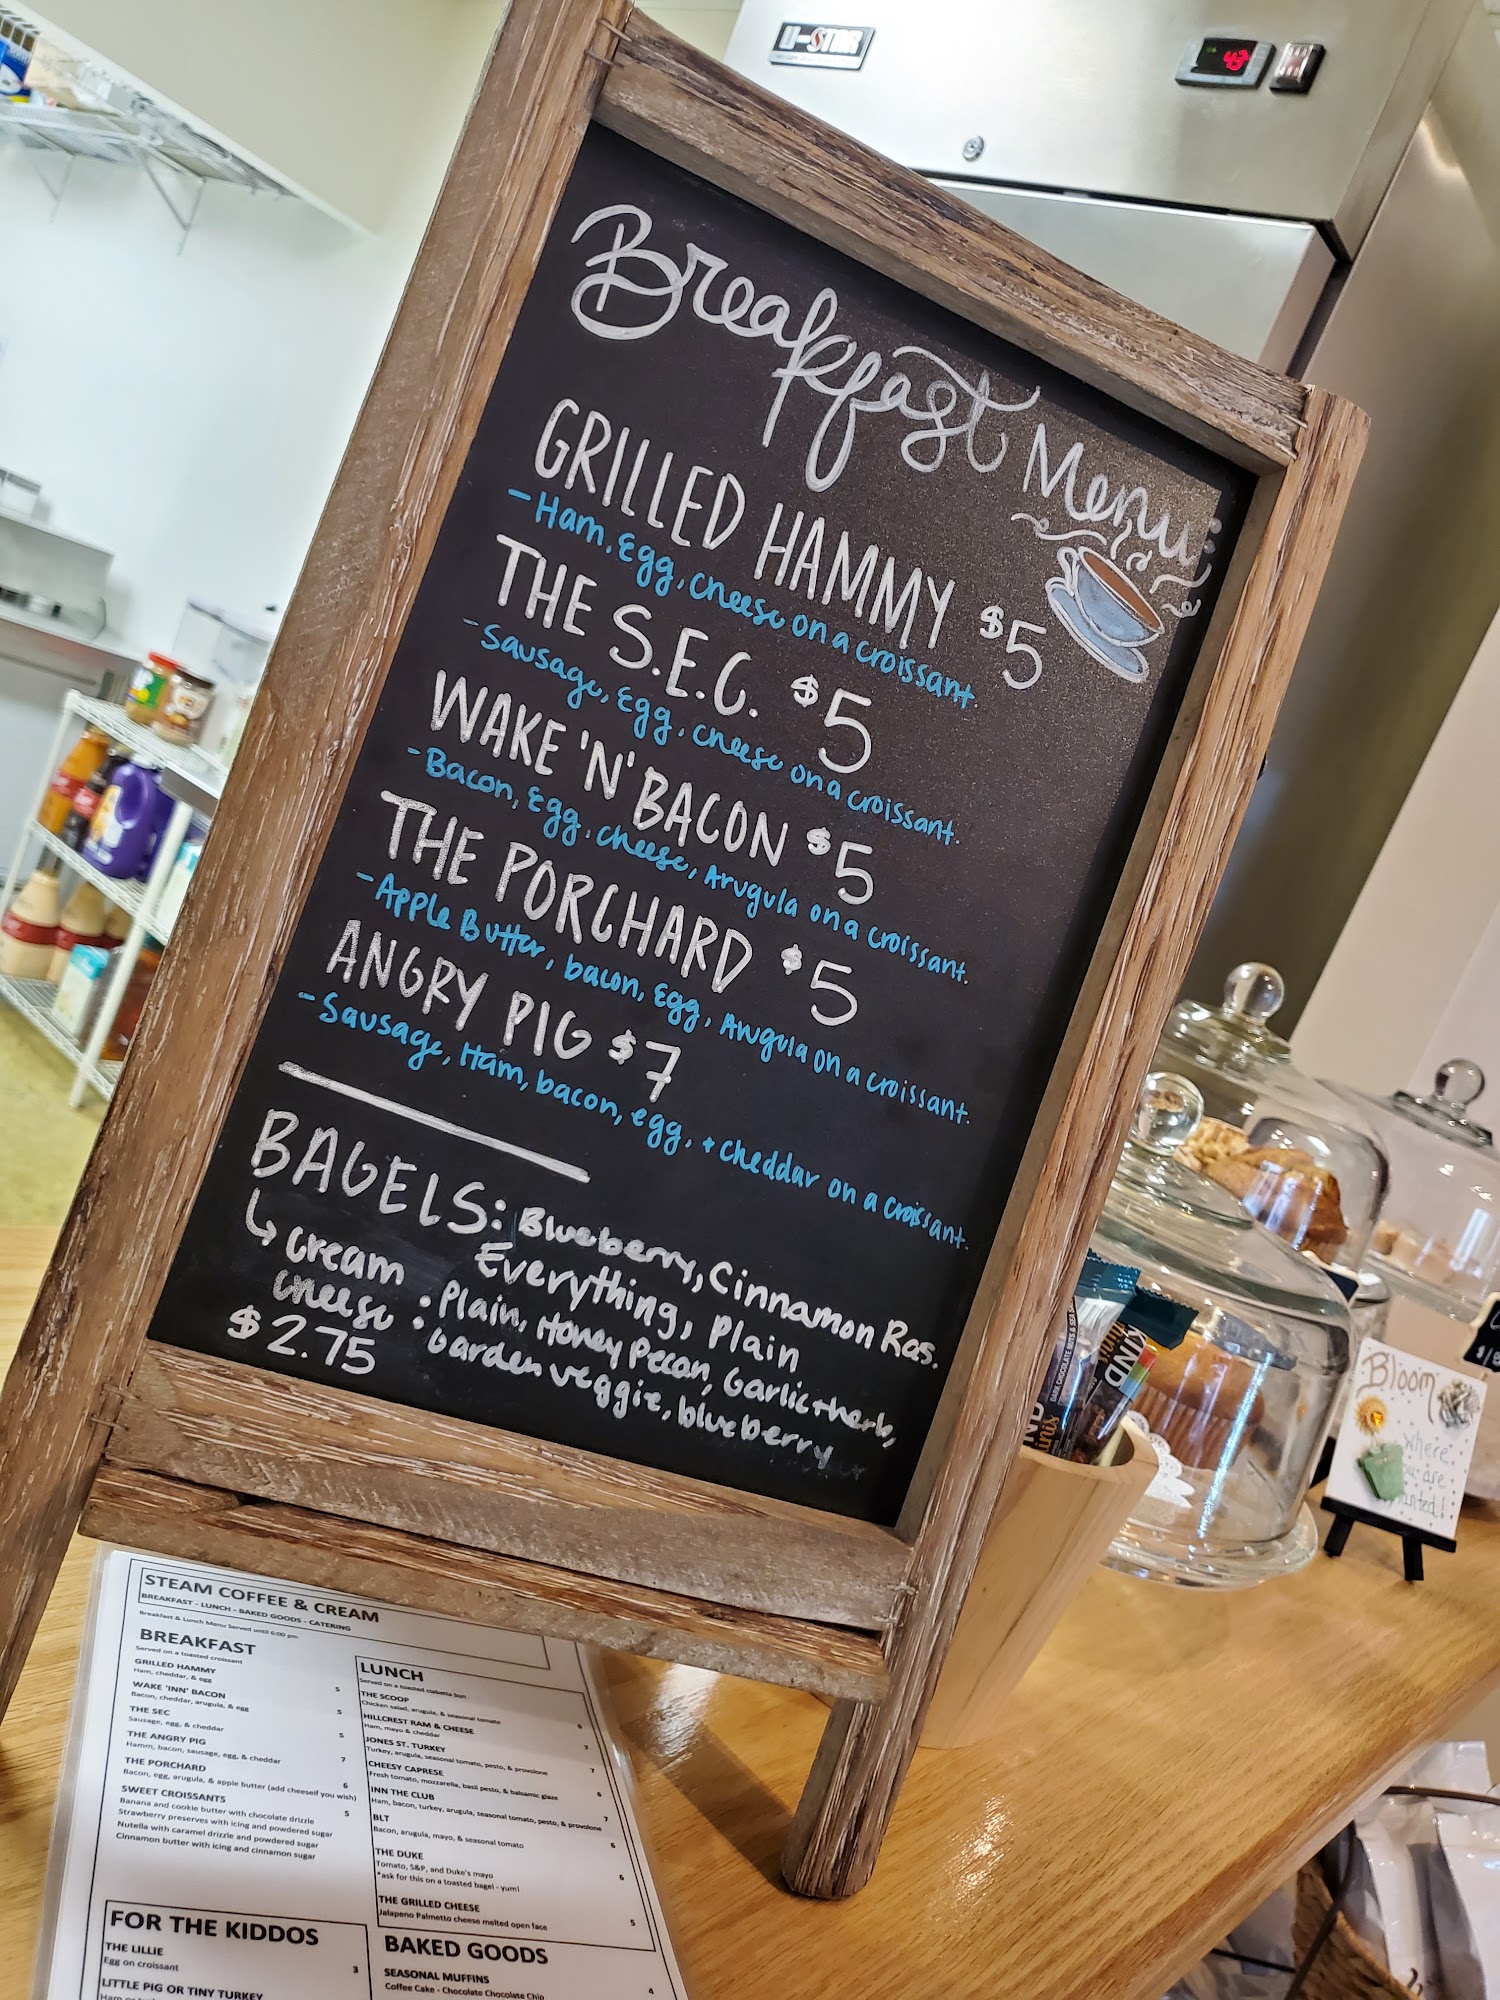 U-STAR
43
Breakfast Menu:
GRILLED HAMMY $5
-Ham, Egg, cheese on a croissant.
THE S.E.C. $5
-Sausage, Egg, cheese on a croissant.
WAKE 'N' BACON $5
-Bacon, Egg, cheese, Arugula on a croissant.
THE PORCHARD $5
-Apple Butter, bacon, Egg, Arugula on a croissant.
ANGRY PIG $7
-Sausage, Ham, bacon, egg, + cheddar on a croissant.
BAGELS: Blueberry, Cinnamon Ras.
Everything, Plain
↳ cream cheese : Plain, Honey Pecan, Garlic+herb,
$2.75 Garden veggie, blueberry
KIND
minis
DARK CHOCOLATE NUTS & SEA
Bloom
where
you are
planted!
STEAM COFFEE & CREAM
BREAKFAST - LUNCH - BAKED GOODS - CATERING
Breakfast & Lunch Menu Served until 6:00 pm
BREAKFAST
Served on a toasted croissant
GRILLED HAMMY 5
Ham, cheddar, & egg
WAKE 'INN' BACON 5
Bacon, cheddar, arugula, & egg
THE SEC 5
Sausage, egg, & cheddar
THE ANGRY PIG 7
Hamm, bacon, sausage, egg, & cheddar
THE PORCHARD 6
Bacon, egg, arugula, & apple butter (add cheeseif you wish)
SWEET CROISSANTS 5
Banana and cookie butter with chocolate drizzle
Strawberry preserves with icing and powdered sugar
Nutella with caramel drizzle and powdered sugar
Cinnamon butter with icing and cinnamon sugar
FOR THE KIDDOS
THE LILLIE
Egg on croissant 3
LITTLE PIG OR TINY TURKEY
LUNCH
Served on a toasted ciabatta bun
THE SCOOP
Chicken salad, arugula, & seasonal tomato 6
HILLCREST RAM & CHEESE
Ham, mayo & cheddar 7
JONES ST. TURKEY
Turkey, arugula, seasonal tomato, pesto, & provolone 7
CHEESY CAPRESE
Fresh tomato, mozzarella, basil pesto, & balsamic glaze 6
INN THE CLUB
Ham, bacon, turkey, arugula, seasonal tomato, pesto, & provolone 7
BLT
Bacon, arugula, mayo, & seasonal tomato 6
THE DUKE
Tomato, S&P, and Duke's mayo 6
*ask for this on a toasted bagel - yum!
THE GRILLED CHEESE
Jalapeno Palmetto cheese melted open face 5
BAKED GOODS
SEASONAL MUFFINS
Coffee Cake - Chocolate Chocolate Chip 4